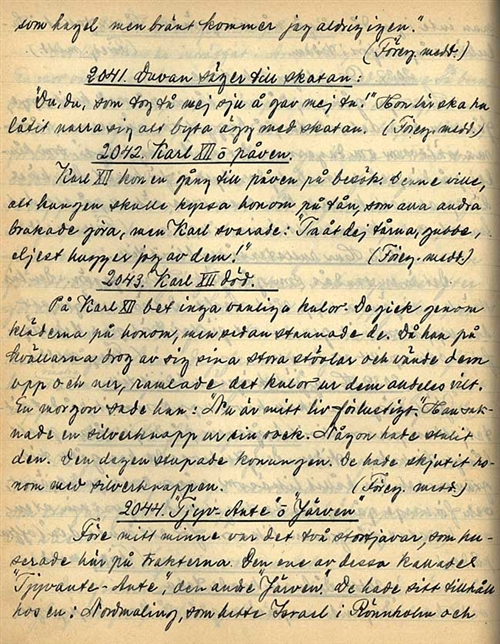 som hagel men bränt kommer jag aldrig igen."
(Föreg. medd.)
2041. Duvan säger till skatan:
"Du, du, som tog tå mej sju å gav mej tu." Hon lär ska ha
låtit narra sig att byta ägg med skatan. (Föreg. medd.)
2042. Karl XII o påven.
Karl XII kom en gång till påven på besök. Denne ville,
att kungen skulle kyssa honom på tån, som alla andra
brukade göra, men Karl svarade: "Ta åt dej tårna, gubbe,
eljest hugger jag av dem!" (Föreg. medd.)
2043. Karl XII död.
På Karl XII bet inga vanliga kulor. De gick genom
kläderna på honom, men sedan stannade de. Då han på
kvällarna drog av sig sina stora stövlar och vände dem
upp och ner, ramlade det kulor ur dem alldeles vilt.
En morgon sade han: "Nu är mitt liv förlustigt." Han sak-
nade en silverknapp ur sin rock. Någon hade stulit
den. Den dagen stupade konungen. De hade skjutit ho-
nom med silverknappen. (Föreg. medd.)
2044. "Tjyv-Ante" o "Järven"
Före mitt minne var det två stortjuvar, som hu-
serade här på trakterna. Den ene av dessa kallades
"Tjyvante-Ante", den andre "Järven". De hade sitt tillhåll
hos en i Nordmaling, som hette Israel i Rönnholm och